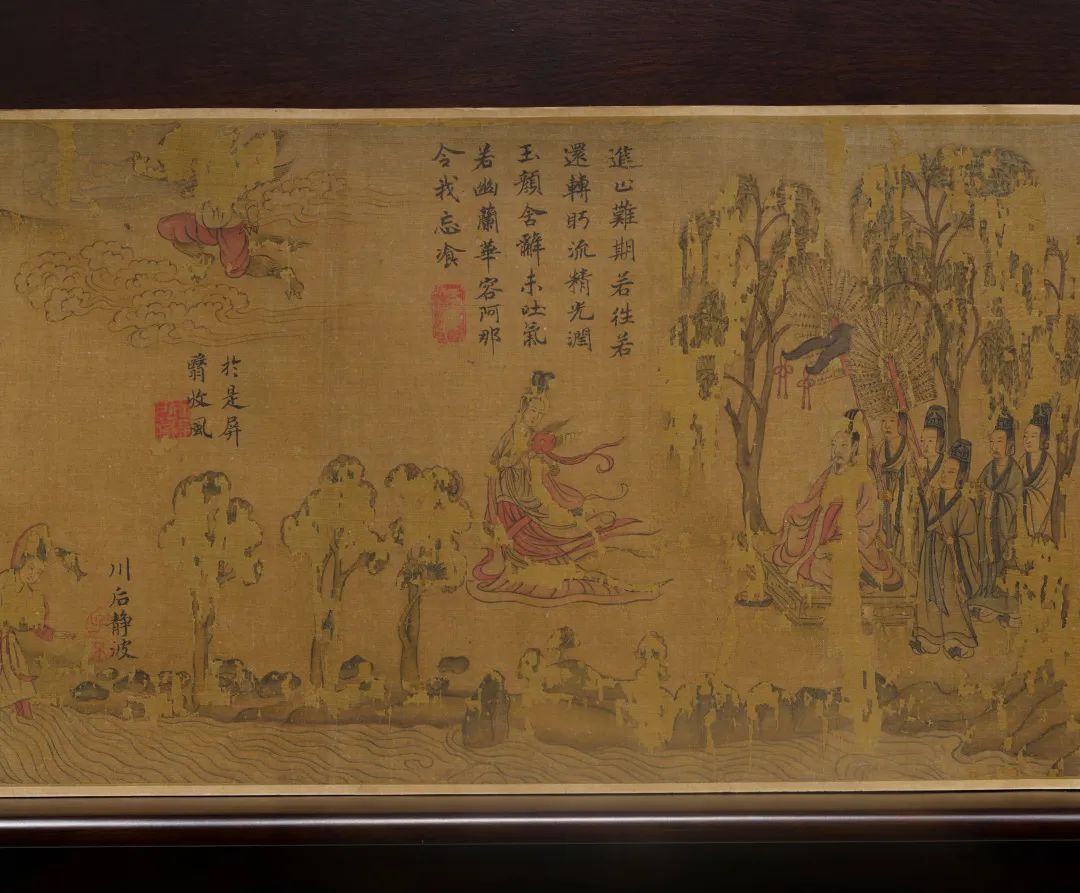 進止難期若往若
還轉眄流精光潤
玉顏含辭未吐氣
若幽蘭華容阿那
令我忘飡
於是屏
翳收風
川后静波